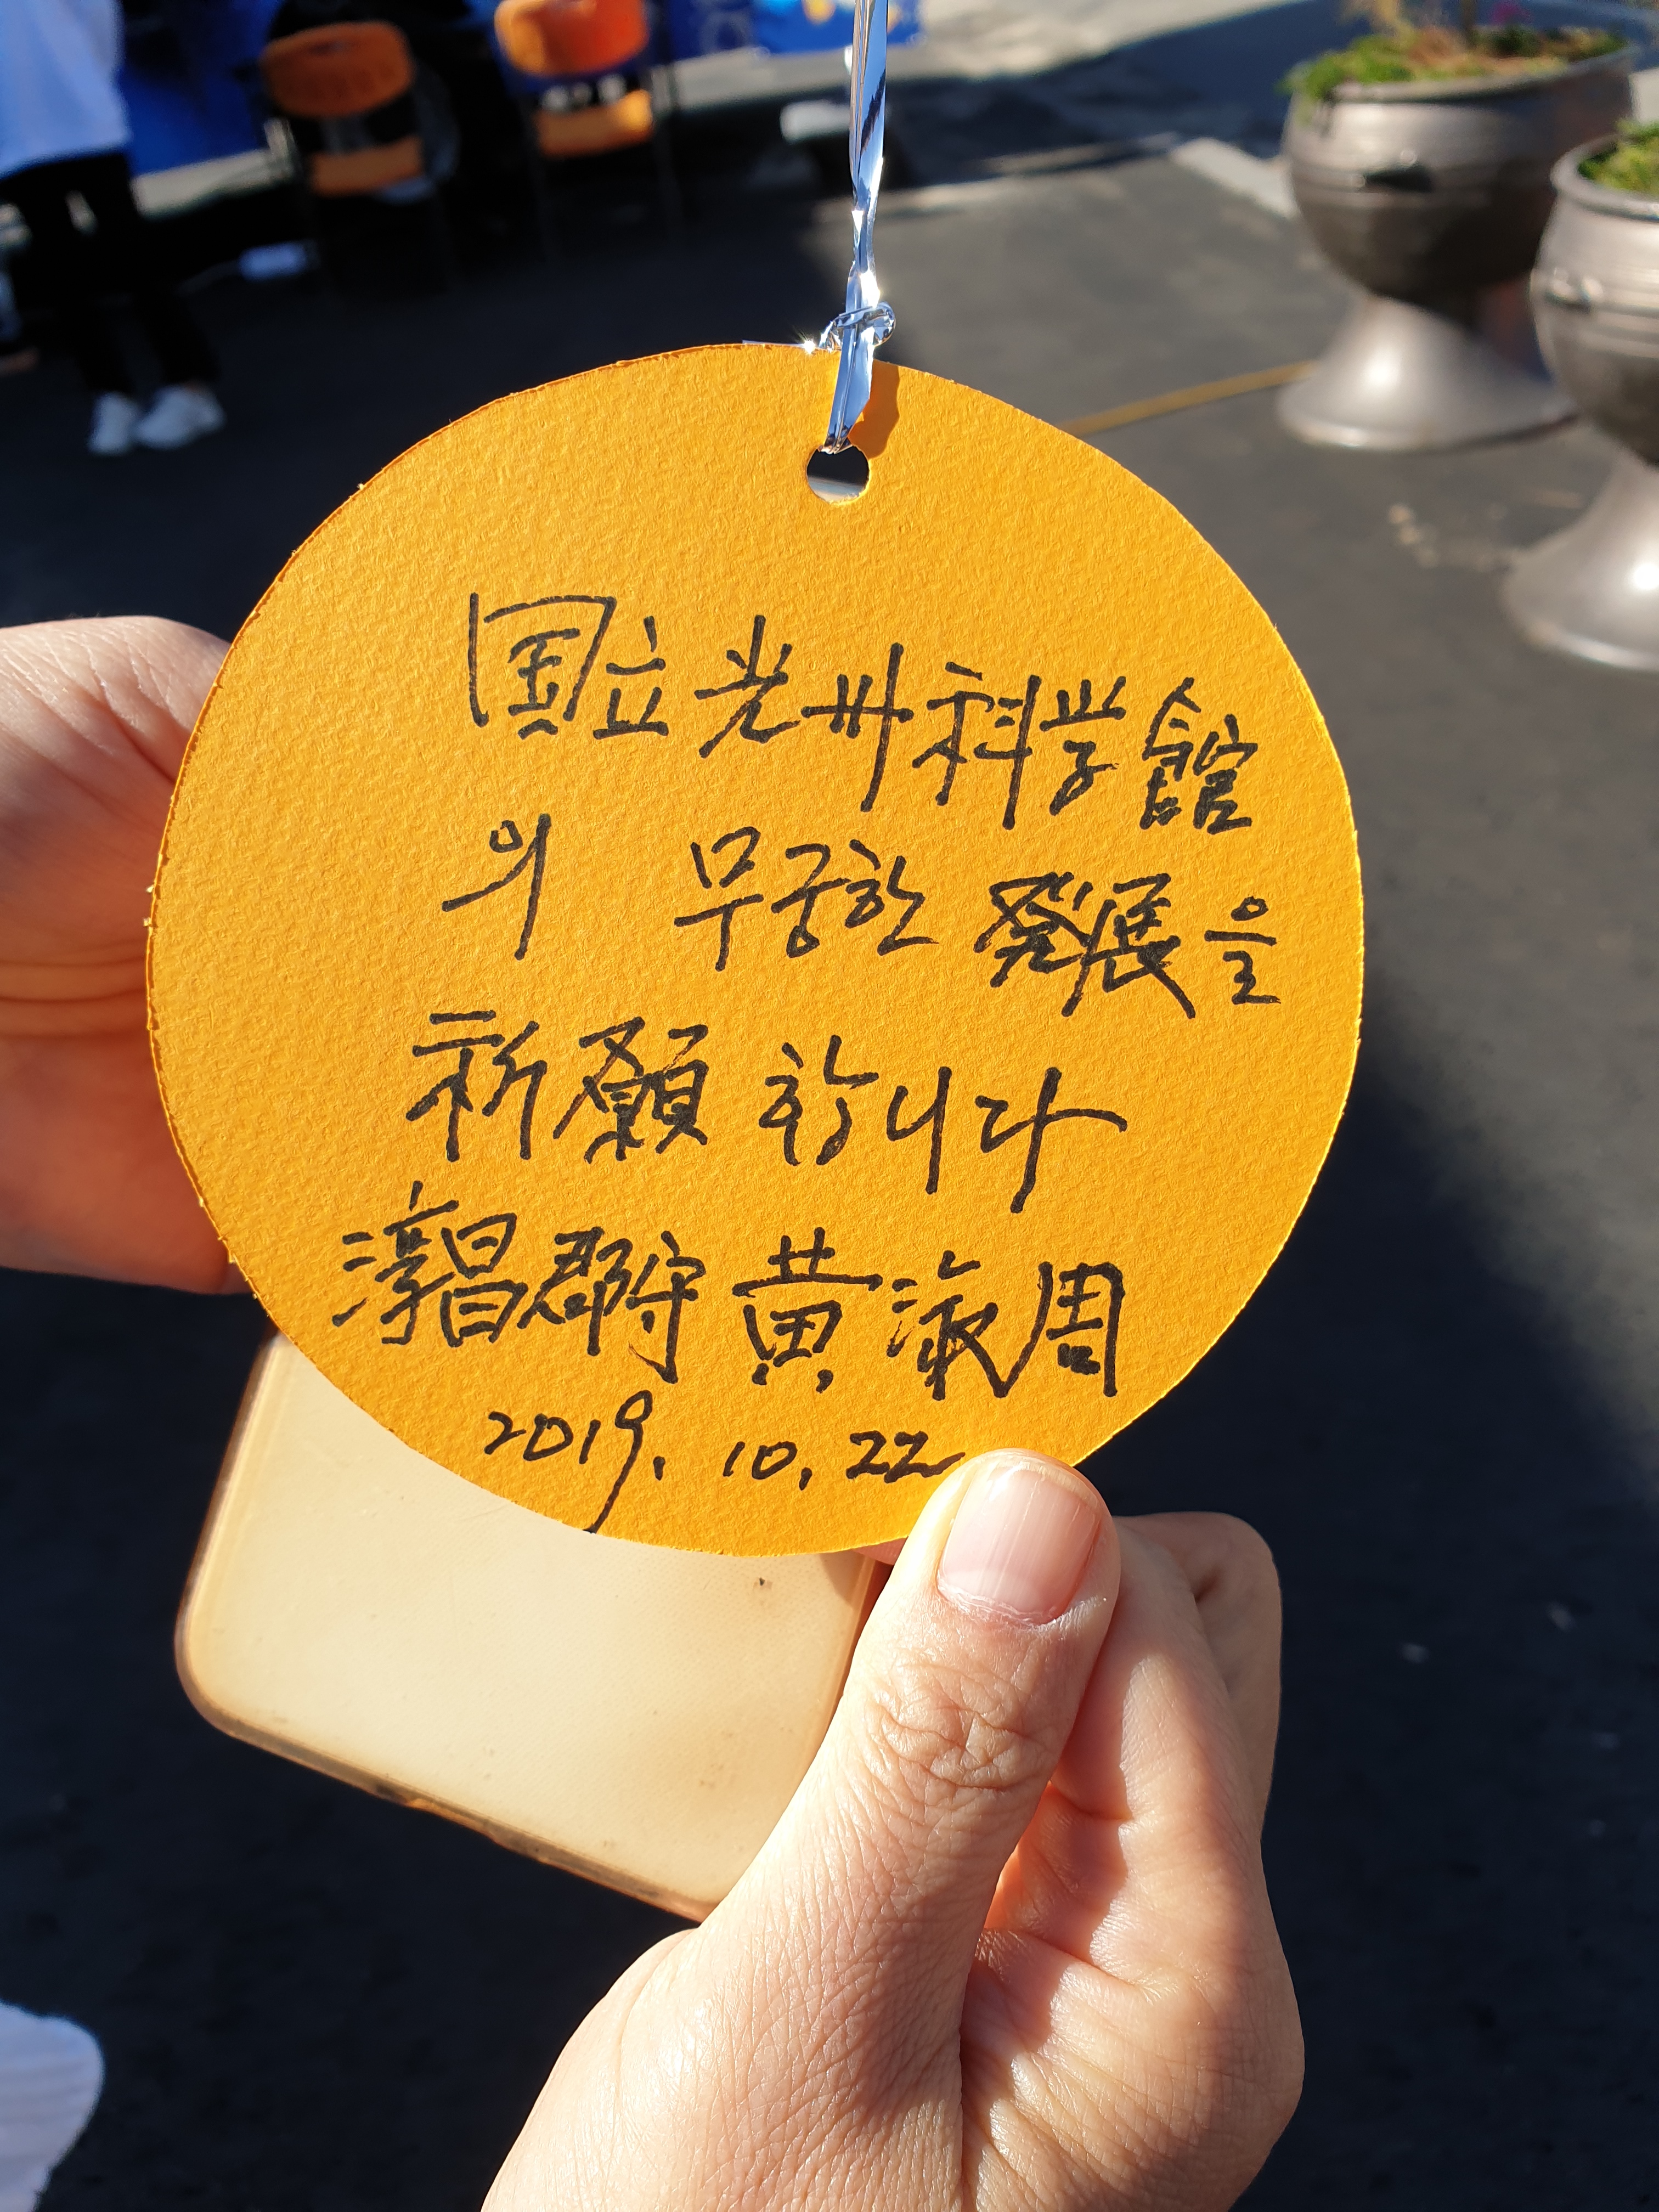 国立光州科学館
의 무궁한 發展을
祈願합니다
淳昌郡守 黄淑周
2019. 10. 22